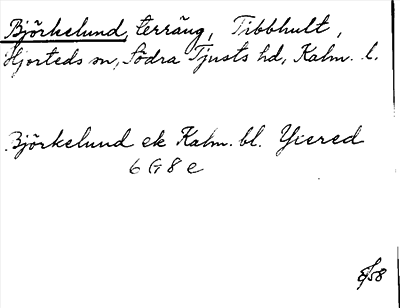 Björkelund, terräng, Tibbhult,
Hjorteds sn, Södra Tjusts hd, Kalm. l.
Björkelund ek Kalm. bl. Yxered
6 G 8 e